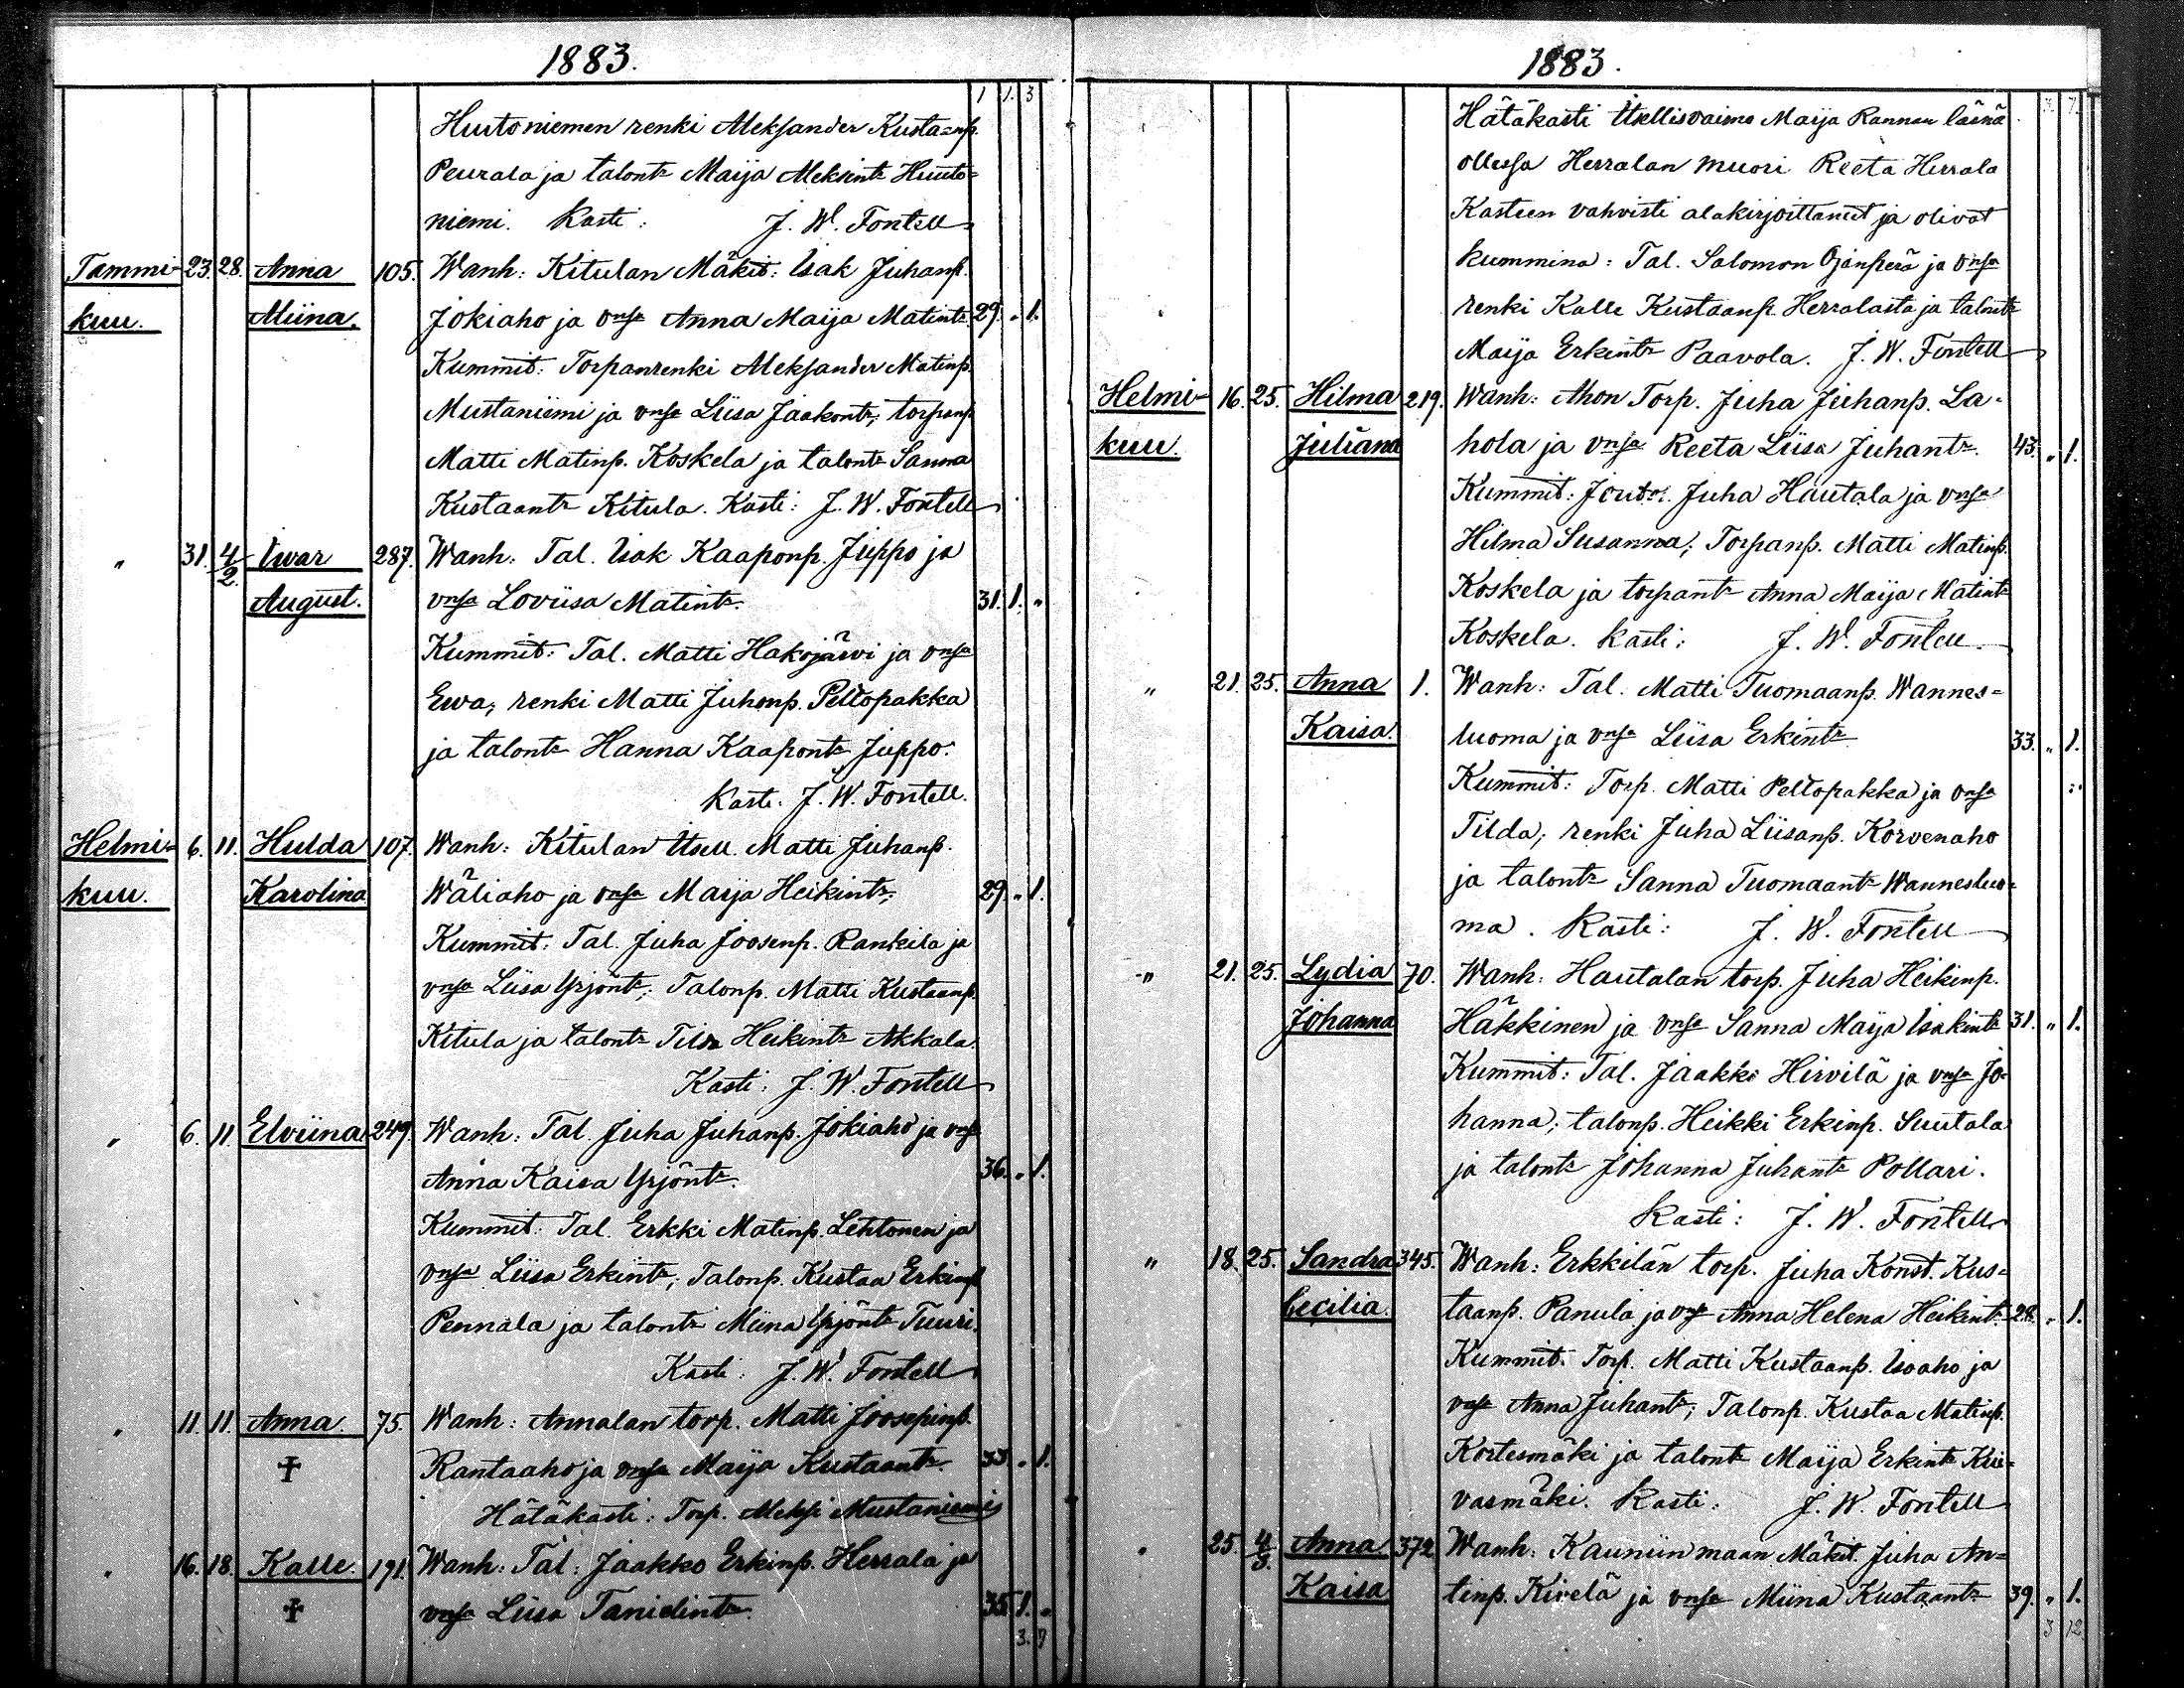 1883.
1 1. 3
Huutoniemen renki Aleksander Kustaanp.
Peurala ja talontr Maija Aleksintr Huuto-
niemi. Kasti: J. W. Fontell
Tammi- 23. 28. Anna 105. Wanh: Kitulan Mäkit: Isak Juhanp.
kuu. Miina. Jokiaho ja vnsa Anna Maija Matintr. 29. „ 1.
Kummit: Torpanrenki Aleksander Matinp.
Mustaniemi ja vnsa Liisa Jaakontr; torpanp.
Matti Matinp. Koskela ja talontr Sanna
Kustaantr Kitula. Kasti: J. W. Fontell
„ 31. 4/2. Iwar 287. Wanh: Tal. Isak Kaaponp. Juppo ja
August. vnsa Loviisa Matintr. 31. 1. „
Kummit: Tal. Matti Hakojärvi ja vnsa
Ewa; renki Matti Juhanp. Peltopakka
ja talontr Hanna Kaapontr Juppo.
Kasti: J. W. Fontell.
Helmi- 6. 11. Hulda 107. Wanh: Kitulan Itsell. Matti Juhanp.
kuu. Karolina Wäliaho ja vnsa Maija Heikintr; 29. „ 1.
Kummit: Tal. Juha Joosenp. Rankila ja
vnsa Liisa Yrjöntr; Talonp. Matti Kustaanp.
Kitula ja talontr Tilda Heikintr Akkala.
Kasti: J. W. Fontell
„ 6. 11. Elviina 249. Wanh: Tal. Juha Juhanp. Jokiaho ja vnsa
Anna Kaisa Yrjöntr. 36. „ 1.
Kummit: Tal. Erkki Matinp. Lehtonen ja
vnsa Liisa Erkintr; Talonp. Kustaa Erkinp.
Pennala ja talontr Miina Yrjöntr Tuuri.
Kasti: J. W. Fontell
„ 11. 11. Anna. 75. Wanh: Annalan torp. Matti Joosepinp.
✝ Rantaaho ja vnsa Maija Kustaantr. 33. „ 1.
Hätäkasti: Torp. Aleksi Mustaniemi
„ 16. 18. Kalle. 191. Wanh: Tal: Jaakko Erkinp. Herrala ja
✝ vnsa Liisa Tanielintr. 35. 1. „
3. 7
1883.
3. 7.
Hätäkasti Itsellisvaimo Maija Rannan läsnä
ollessa Herralan muori Reeta Herrala
Kasteen vahvisti alakirjoittanut ja olivat
kummina: Tal. Salomon Ojanperä ja vnsa
renki Kalle Kustaanp. Herralasta ja talontr
Maija Erkintr Paavola. J. W. Fontell
Helmi- 16. 25. Hilma 219. Wanh: Ahon Torp. Juha Juhanp. La-
kuu. Juliana hola ja vnsa Reeta Liisa Juhantr. 43. „ 1.
Kummit: Juha Hautala ja vnsa
Hilma Susanna; Torpanp. Matti Matinp.
Koskela ja torpantr Anna Maija Matintr
Koskela. Kasti: J. W. Fontell.
„ 21. 25. Anna 1. Wanh: Tal. Matti Tuomaanp. Wannes-
Kaisa. luoma ja vnsa Liisa Erkintr 33. „ 1.
Kummit: Torp. Matti Peltopakka ja vnsa
Tilda; renki Juha Liisanp. Korvenaho
ja talontr Sanna Tuomaantr Wannesluo-
ma. Kasti: J. W. Fontell
„ 21. 25. Lydia 70. Wanh: Hautalan torp. Juha Heikinp.
Johanna Häkkinen ja vnsa Sanna Maija Isakintr 31. „ 1.
Kummit: Tal. Jaakko Hirvilä ja vnsa Jo-
hanna; talonp. Heikki Erkinp. Suutala
ja talontr Johanna Juhantr Pollari.
Kasti: J. W. Fontell
„ 18. 25. Sandra 345. Wanh: Erkkilän torp. Juha Konst. Kus-
Cecilia. taanp. Panula ja vnsa Anna Helena Heikintr. 28. „ 1.
Kummit: Torp. Matti Kustaanp. Isoaho ja
vnsa Anna Juhantr; Talonp. Kustaa Matinp.
Kortesmäki ja talontr Maija Erkintr Kui-
vasmäki. Kasti: J. W. Fontell
„ 25. 4/3. Anna 372 Wanh: Kauniinmaan Mäkit. Juha An-
Kaisa tinp. Kivelä ja vnsa Miina Kustaantr 39. „ 1.
3 12